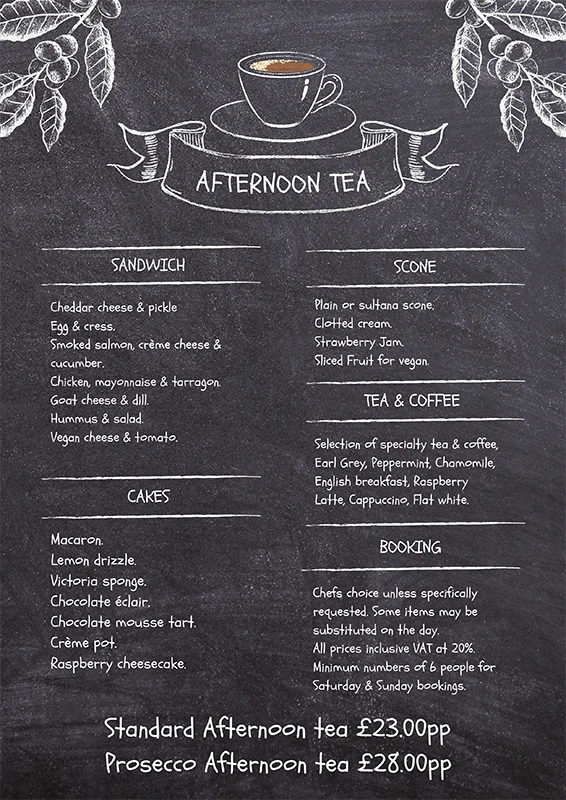 AFTERNOON TEA
SANDWICH
Cheddar cheese & pickle
Egg & cress.
Smoked salmon, crème cheese &
cucumber.
Chicken, mayonnaise & tarragon.
Goat cheese & dill.
Hummus & salad.
Vegan cheese & tomato.
CAKES
Macaron.
Lemon drizzle.
Victoria sponge.
Chocolate éclair.
Chocolate mousse tart.
Crème pot.
Raspberry cheesecake.
SCONE
Plain or sultana scone.
Clotted cream.
Strawberry Jam.
Sliced Fruit for vegan.
TEA & COFFEE
Selection of specialty tea & coffee,
Earl Grey, Peppermint, Chamomile,
English breakfast, Raspberry
Latte, Cappuccino, Flat white.
BOOKING
Chefs choice unless specifically
requested. Some items may be
substituted on the day.
All prices inclusive VAT at 20%.
Minimum numbers of 6 people for
Saturday & Sunday bookings.
Standard Afternoon tea £23.00pp
Prosecco Afternoon tea £28.00pp